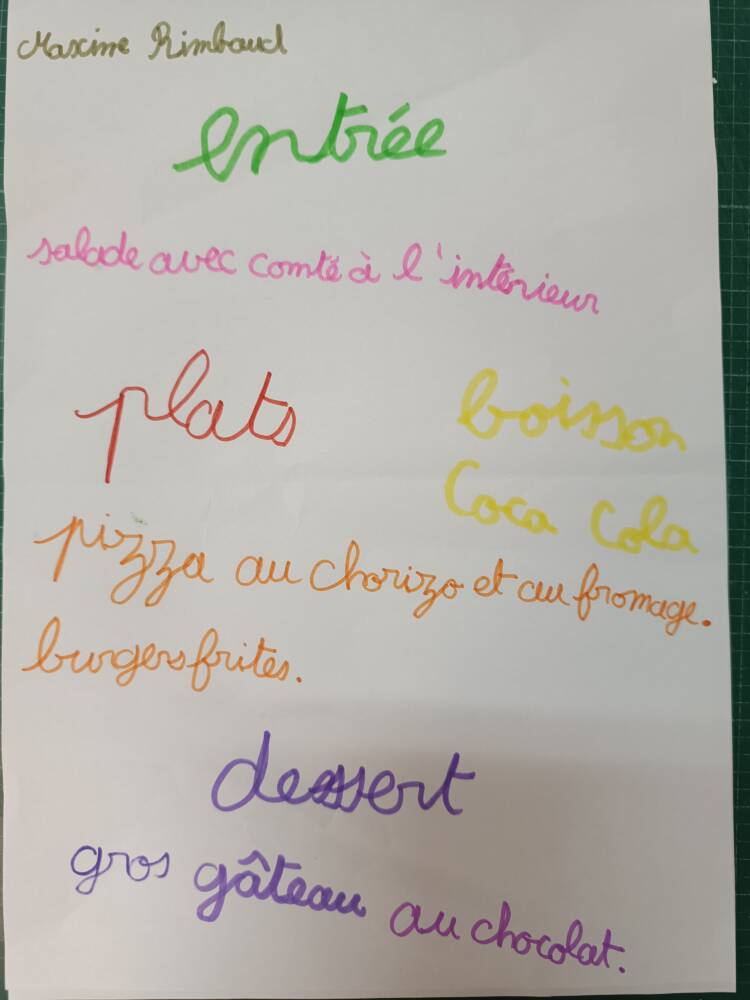 Maxime Rimbaud
entrée
salade avec comté à l'intérieur
plats
boisson
Coca Cola
pizza au chorizo et au fromage.
burgers frites.
dessert
gros gâteau au chocolat.